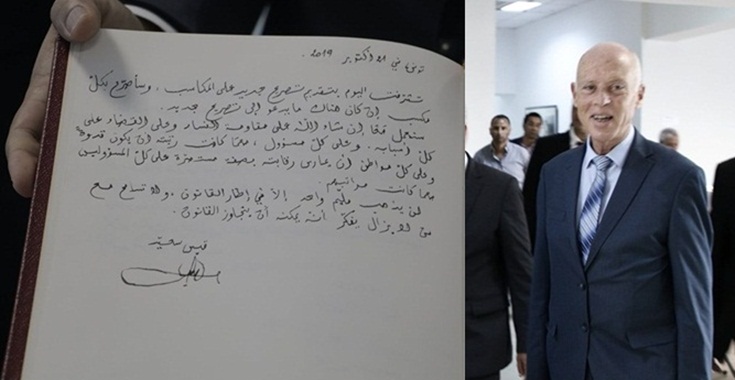 تونس في 21 أكتوبر 2019.
تشرفت اليوم بتقديم تصريح جديد على المكاسب، وسألتزم بكلّ
مكسب إن كان هناك ما يدعو إلى تصريح جديد.
سنعمل معا إن شاء اللّه على مقاومة الفساد وعلى القضاء على
كلّ أسبابه. وعلى كلّ مسؤول، مهما كانت رتبته أن يكون قدوة
وعلى كلّ مواطن أن يمارس رقابته بصفة مستمرّة على كلّ المسؤولين
مهما كانت مراتبهم.
لن يذهب مليم واحد إلاّ في إطار القانون، ولا تسامح مع
من لا يزال يفكّر أنّه يمكنه أن يتجاوز القانون.
قيس سعيّد